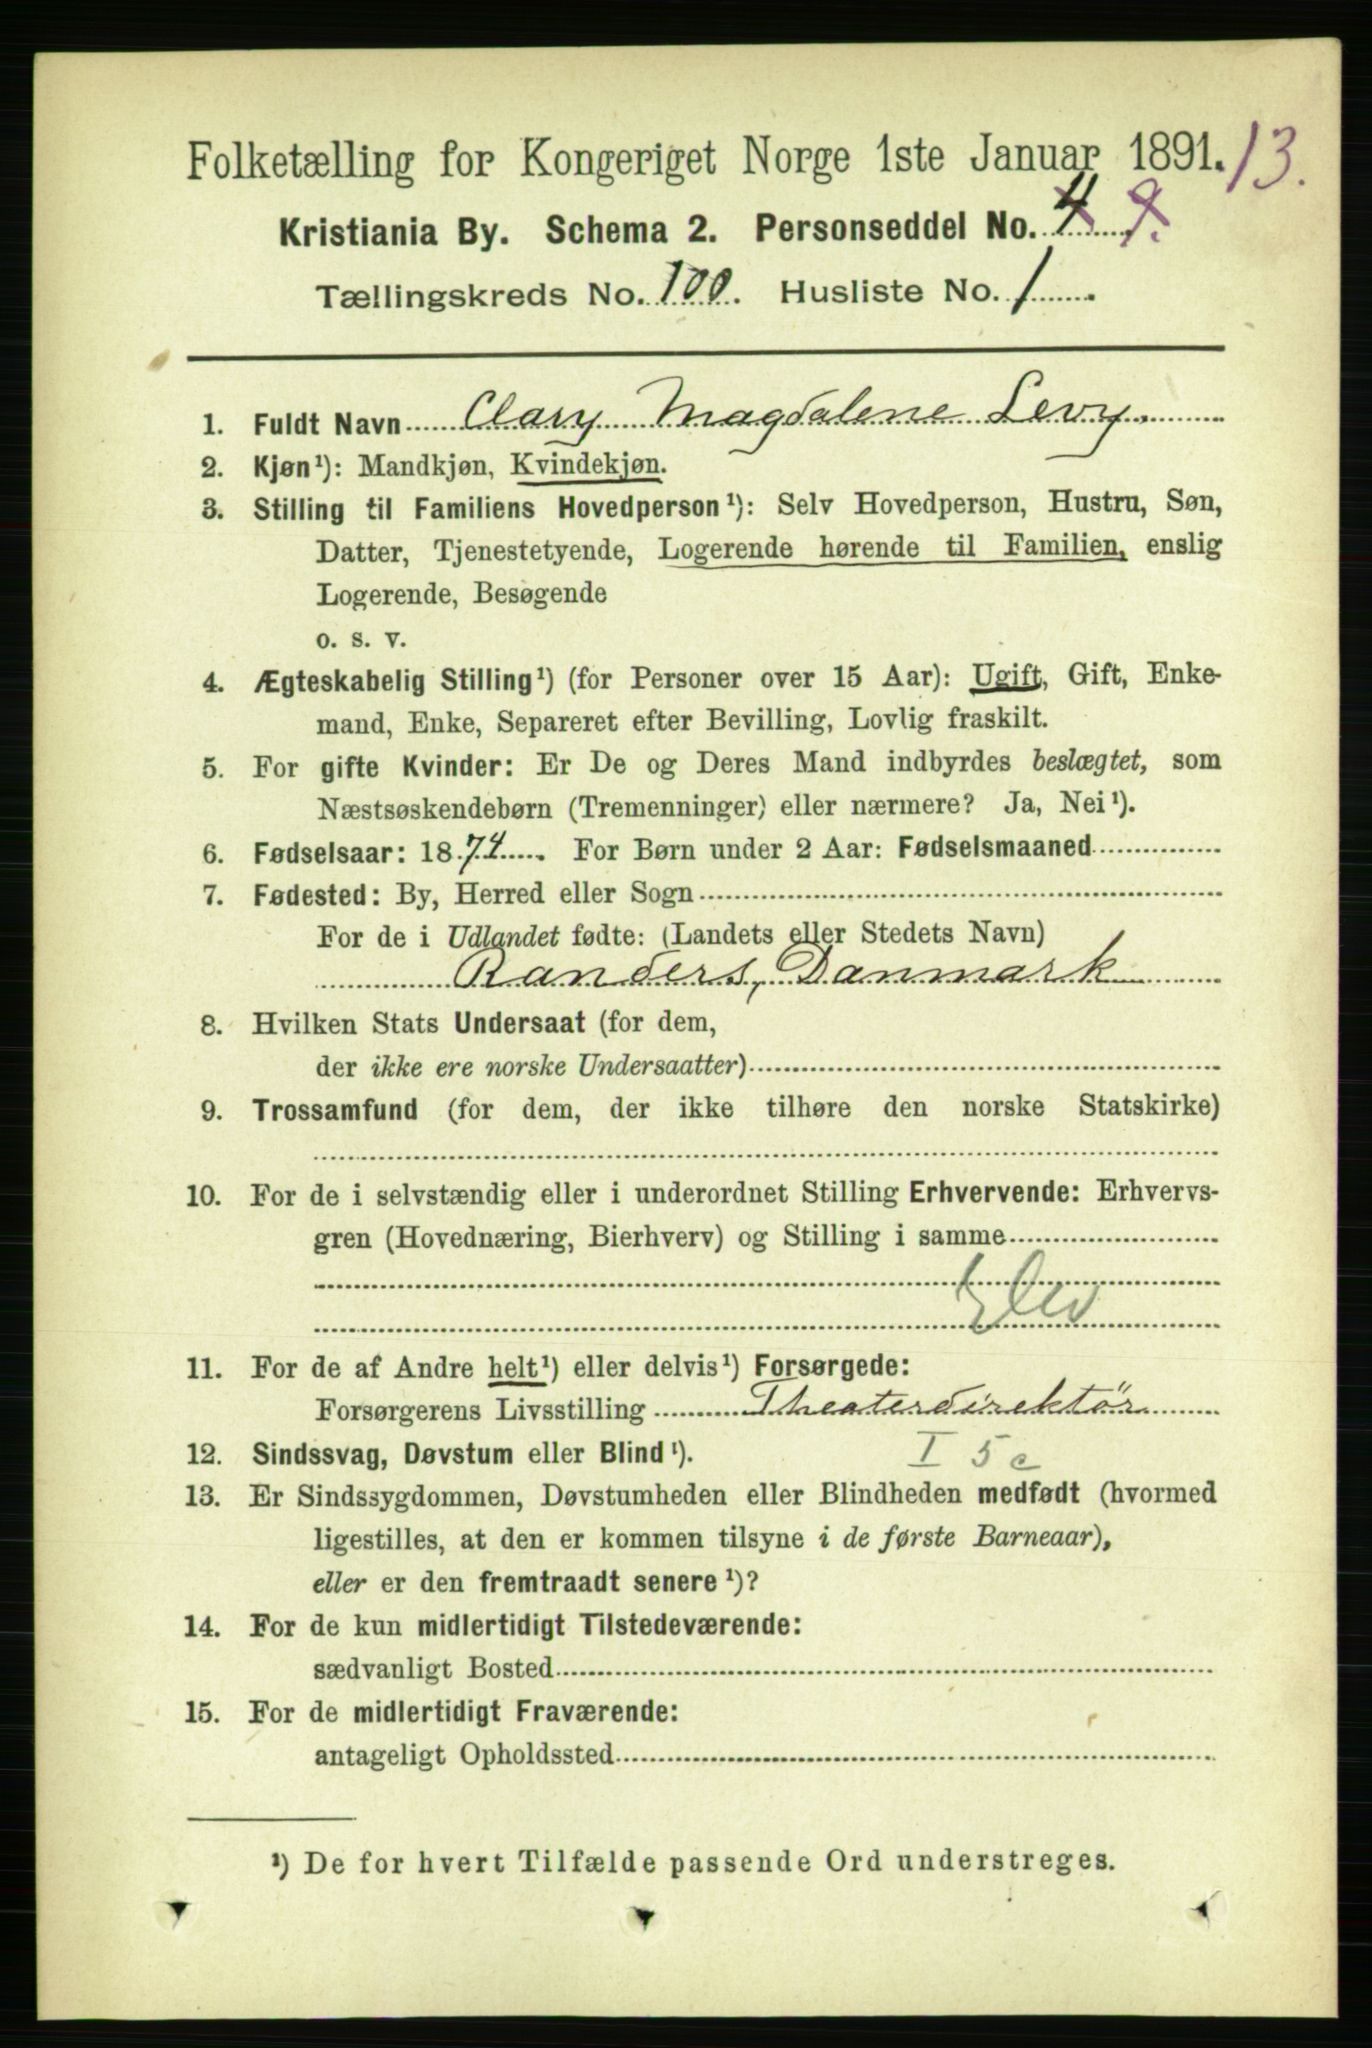 Folketælling for Kongeriget Norge 1ste Januar 1891. 13.
Kristiania By. Schema 2. Personseddel No. 4 9.
Tællingskreds No. 100. Husliste No. 1
1. Fuldt Navn Clary Magdalene Levy.
2. Kjøn¹): Mandkjøn, Kvindekjøn.
3. Stilling til Familiens Hovedperson¹): Selv Hovedperson, Hustru, Søn,
Datter, Tjenestetyende, Logerende hørende til Familien, enslig
Logerende, Besøgende
o. s. v.
4. Ægteskabelig Stilling¹) (for Personer over 15 Aar): Ugift, Gift, Enke-
mand, Enke, Separeret efter Bevilling, Lovlig fraskilt.
5. For gifte Kvinder: Er De og Deres Mand indbyrdes beslægtet, som
Næstsøskendebørn (Tremenninger) eller nærmere? Ja, Nei¹).
6. Fødselsaar: 1874. For Børn under 2 Aar: Fødselsmaaned
7. Fødested: By, Herred eller Sogn
For de i Udlandet fødte: (Landets eller Stedets Navn)
Randers, Danmark
8. Hvilken Stats Undersaat (for dem,
der ikke ere norske Undersaatter)
9. Trossamfund (for dem, der ikke tilhøre den norske Statskirke)
10. For de i selvstændig eller i underordnet Stilling Erhvervende: Erhvervs-
gren (Hovednæring, Bierhverv) og Stilling i samme
Elev
11. For de af Andre helt¹) eller delvis¹) Forsørgede:
Forsørgerens Livsstilling Theaterdirektör
12. Sindssvag, Døvstum eller Blind¹). I 5 c
13. Er Sindssygdommen, Døvstumheden eller Blindheden medfødt (hvormed
ligestilles, at den er kommen tilsyne i de første Barneaar),
eller er den fremtraadt senere¹)?
14. For de kun midlertidigt Tilstedeværende:
sædvanligt Bosted
15. For de midlertidigt Fraværende:
antageligt Opholdssted
¹) De for hvert Tilfælde passende Ord understreges.